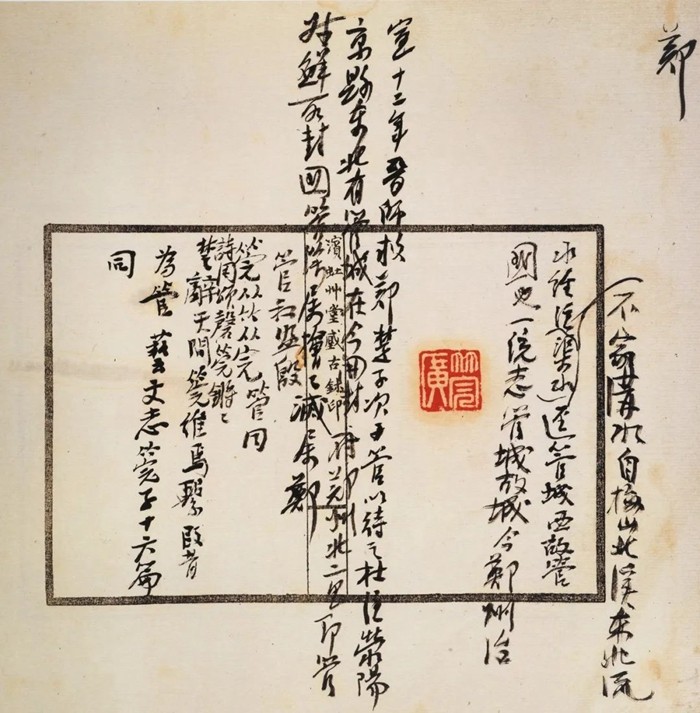 鄭
不家溝水自梅山北溪東北流
水經注渠水逕管城西故管
國也一統志管城故城今鄭州治
宣十二年晉師救鄭楚子次于管以待之杜注滎陽
京縣東北有管城在今開封府鄭州北二里即管
叔鮮所封國管屬檜檜滅屬鄭
濱虹艸堂藏古鉨印
管叔監殷
筦从竹从完管同
詩周頌磬筦鏘鏘
楚辭天問筦維焉繫
為管 藝文志筦子十六篇
同